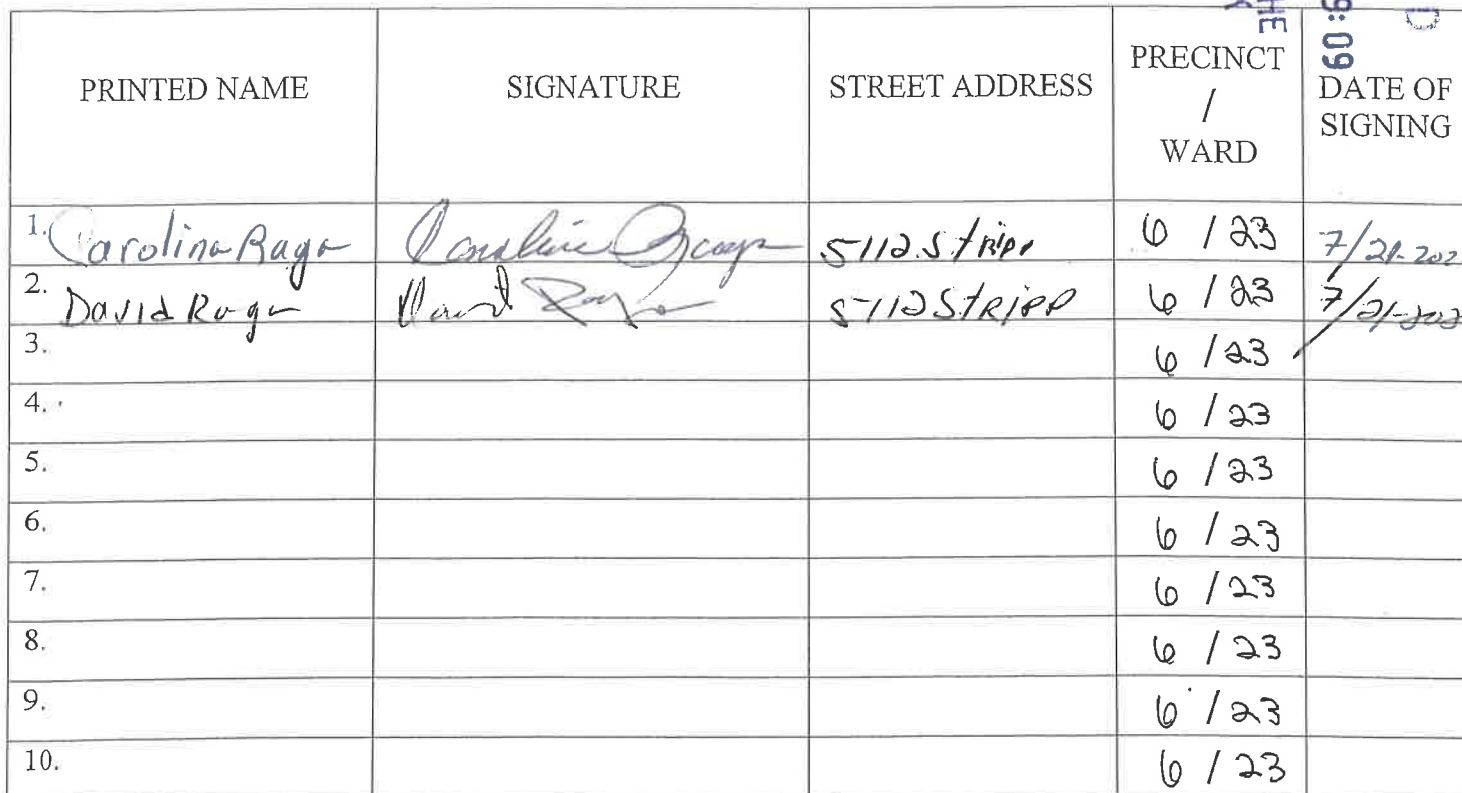 HE
9:09
D
PRINTED NAME SIGNATURE STREET ADDRESS PRECINCT / WARD DATE OF SIGNING
1. Carolina Raga 5112 S tripp 6 / 23 7/21-202
2. David Raga David 5112 S tripp 6 / 23 7/21-202
3. 6 / 23
4. 6 / 23
5. 6 / 23
6. 6 / 23
7. 6 / 23
8. 6 / 23
9. 6 / 23
10. 6 / 23